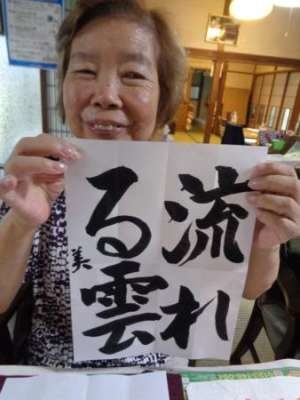 流れ
る雲
美